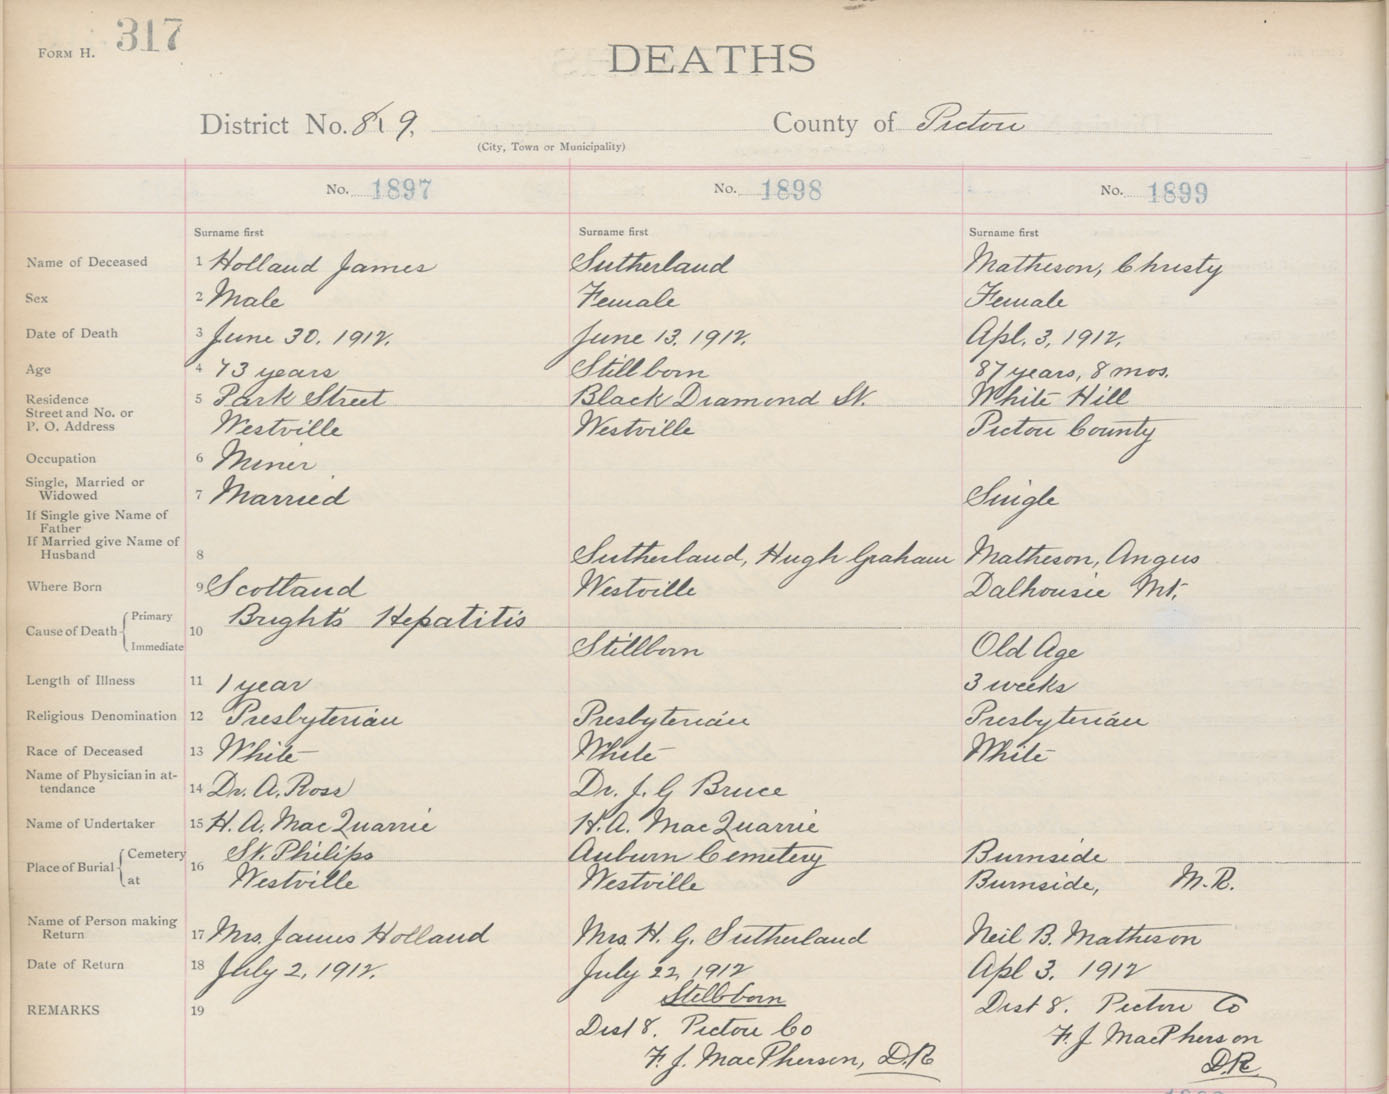 FORM H. 317
DEATHS
District No. 8 & 9, County of Pictou
(City, Town or Municipality)
No. 1897 No. 1898 No. 1899
Surname first Surname first Surname first
Name of Deceased 1 Holland James Sutherland Matheson, Christy
Sex 2 Male Female Female
Date of Death 3 June 30. 1912. June 13. 1912. Apl. 3, 1912.
Age 4 73 years Stillborn 87 years, 8 mos.
Residence 5 Park Street Black Diamond St. White Hill
Street and No. or
P. O. Address Westville Westville Pictou County
Occupation 6 Miner
Single, Married or
Widowed 7 Married Single
If Single give Name of
Father
If Married give Name of
Husband 8 Sutherland, Hugh Graham Matheson, Angus
Where Born 9 Scotland Westville Dalhousie Mt.
Cause of Death Primary 10 Bright's Hepatitis
Immediate Stillborn Old Age
Length of Illness 11 1 year 3 weeks
Religious Denomination 12 Presbyterian Presbyterian Presbyterian
Race of Deceased 13 White White White
Name of Physician in at-
tendance 14 Dr. A. Ross Dr. J. G Bruce
Name of Undertaker 15 H. A. MacQuarrie H. A. MacQuarrie
Place of Burial Cemetery 16 St. Philips Auburn Cemetery Burnside
at Westville Westville Burnside, M.R.
Name of Person making
Return 17 Mrs. James Holland Mrs. H. G. Sutherland Neil B. Matheson
Date of Return 18 July 2, 1912. July 22, 1912 Apl 3. 1912
REMARKS 19 Stillborn Dist 8. Pictou Co
Dist 8. Pictou Co F. J. MacPherson
F. J. MacPherson, D.R. D.R.